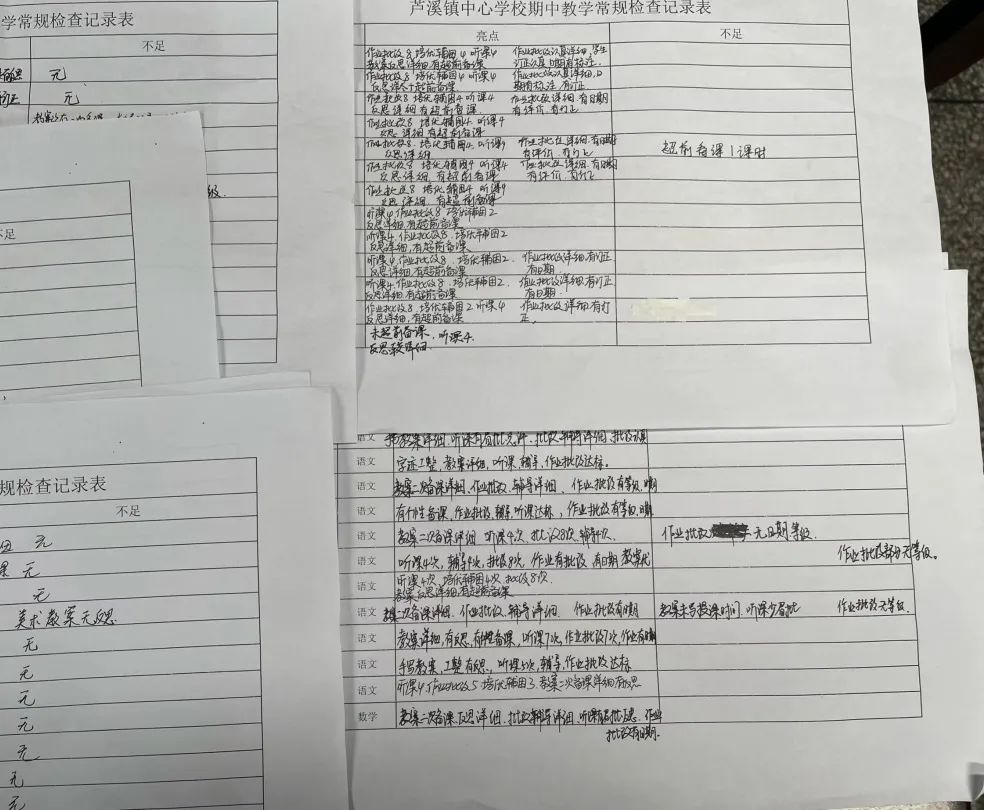 学常规检查记录表
不足
无
无
不足
芦溪镇中心学校期中教学常规检查记录表
亮点
不足
作业批改8 培优辅困4 听课4
教案反思详细有超前备课
作业批改认真详细,学生
订正认真日期有标注.
作业批改8 培优辅困4 听课4
作业批改认真详细,日
期有标注.有订正
作业批改8 培优辅困4 听课4
反思详细有超前备课
作业批改详细.有日期
有评价.有订正
作业批改8 培优辅困4.听课4
反思详细有超前备课
作业批改8.培优辅困4.听课4
反思详细
作业批改详细.有日期
有评价.有订正
超前备课1课时
作业批改8 培优辅困4 听课4
反思详细,有超前备课
作业批改详细.有日期
有评价.有订正
作业批改8 培优辅困4 听课4
反思详细.有超前备课
听课4作业批改8.培优辅困2
反思详细,有超前备课
听课4.作业批改8.培优辅困2
反思详细,有超前备课
听课4,作业批改8.培优辅困2.
反思详细有超前备课
作业批改详细.有订正
有日期.
听课4作业批改8.培优辅困2.
反思详细,有超前备课
作业批改详细有订正
有日期.
作业批改8.培优辅困2听课4
反思详细,有超前备课
作业批改详细有订
正.
未超前备课.听课4.
反思较详细.
规检查记录表
不足
无
无
无
美术教案无反思
无
无
无
无
无
无
无
语文
语文 字迹工整,教案详细,听课,辅导,作业批改达标.
语文 教案二次备课详细,作业批改,辅导详细、作业批改有等级,日期
语文 有个性备课,作业批改,辅导,听课达标,作业批改有等级,日期
语文 教案二次备课详细 听课4次,批改8次,辅导4次. 作业批改 无日期等级.
语文 听课4次,辅导4次,批改8次 作业有批改 有日期 作业批改部分无等级。
语文 听课4次 培优辅困4次 批改8次
教案反思详细有超前备课
语文 教案二次备课详细.作业批改、辅导详细. 作业批改有日期 教案未写授课时间.听课少眉批 作业批改无等级.
语文 教案详细,有反思,有个性备课,听课7次,作业批改7次,作业有日期
语文 手写教案,工整有反思,听课5次,辅导,作业批改达标
语文 听课4.作业批改5 培优辅困3.教案二次备课详细有反思
数学 教案二次备课.反思详细.批改辅导详细.听课有眉批反思.作业
批改有日期.